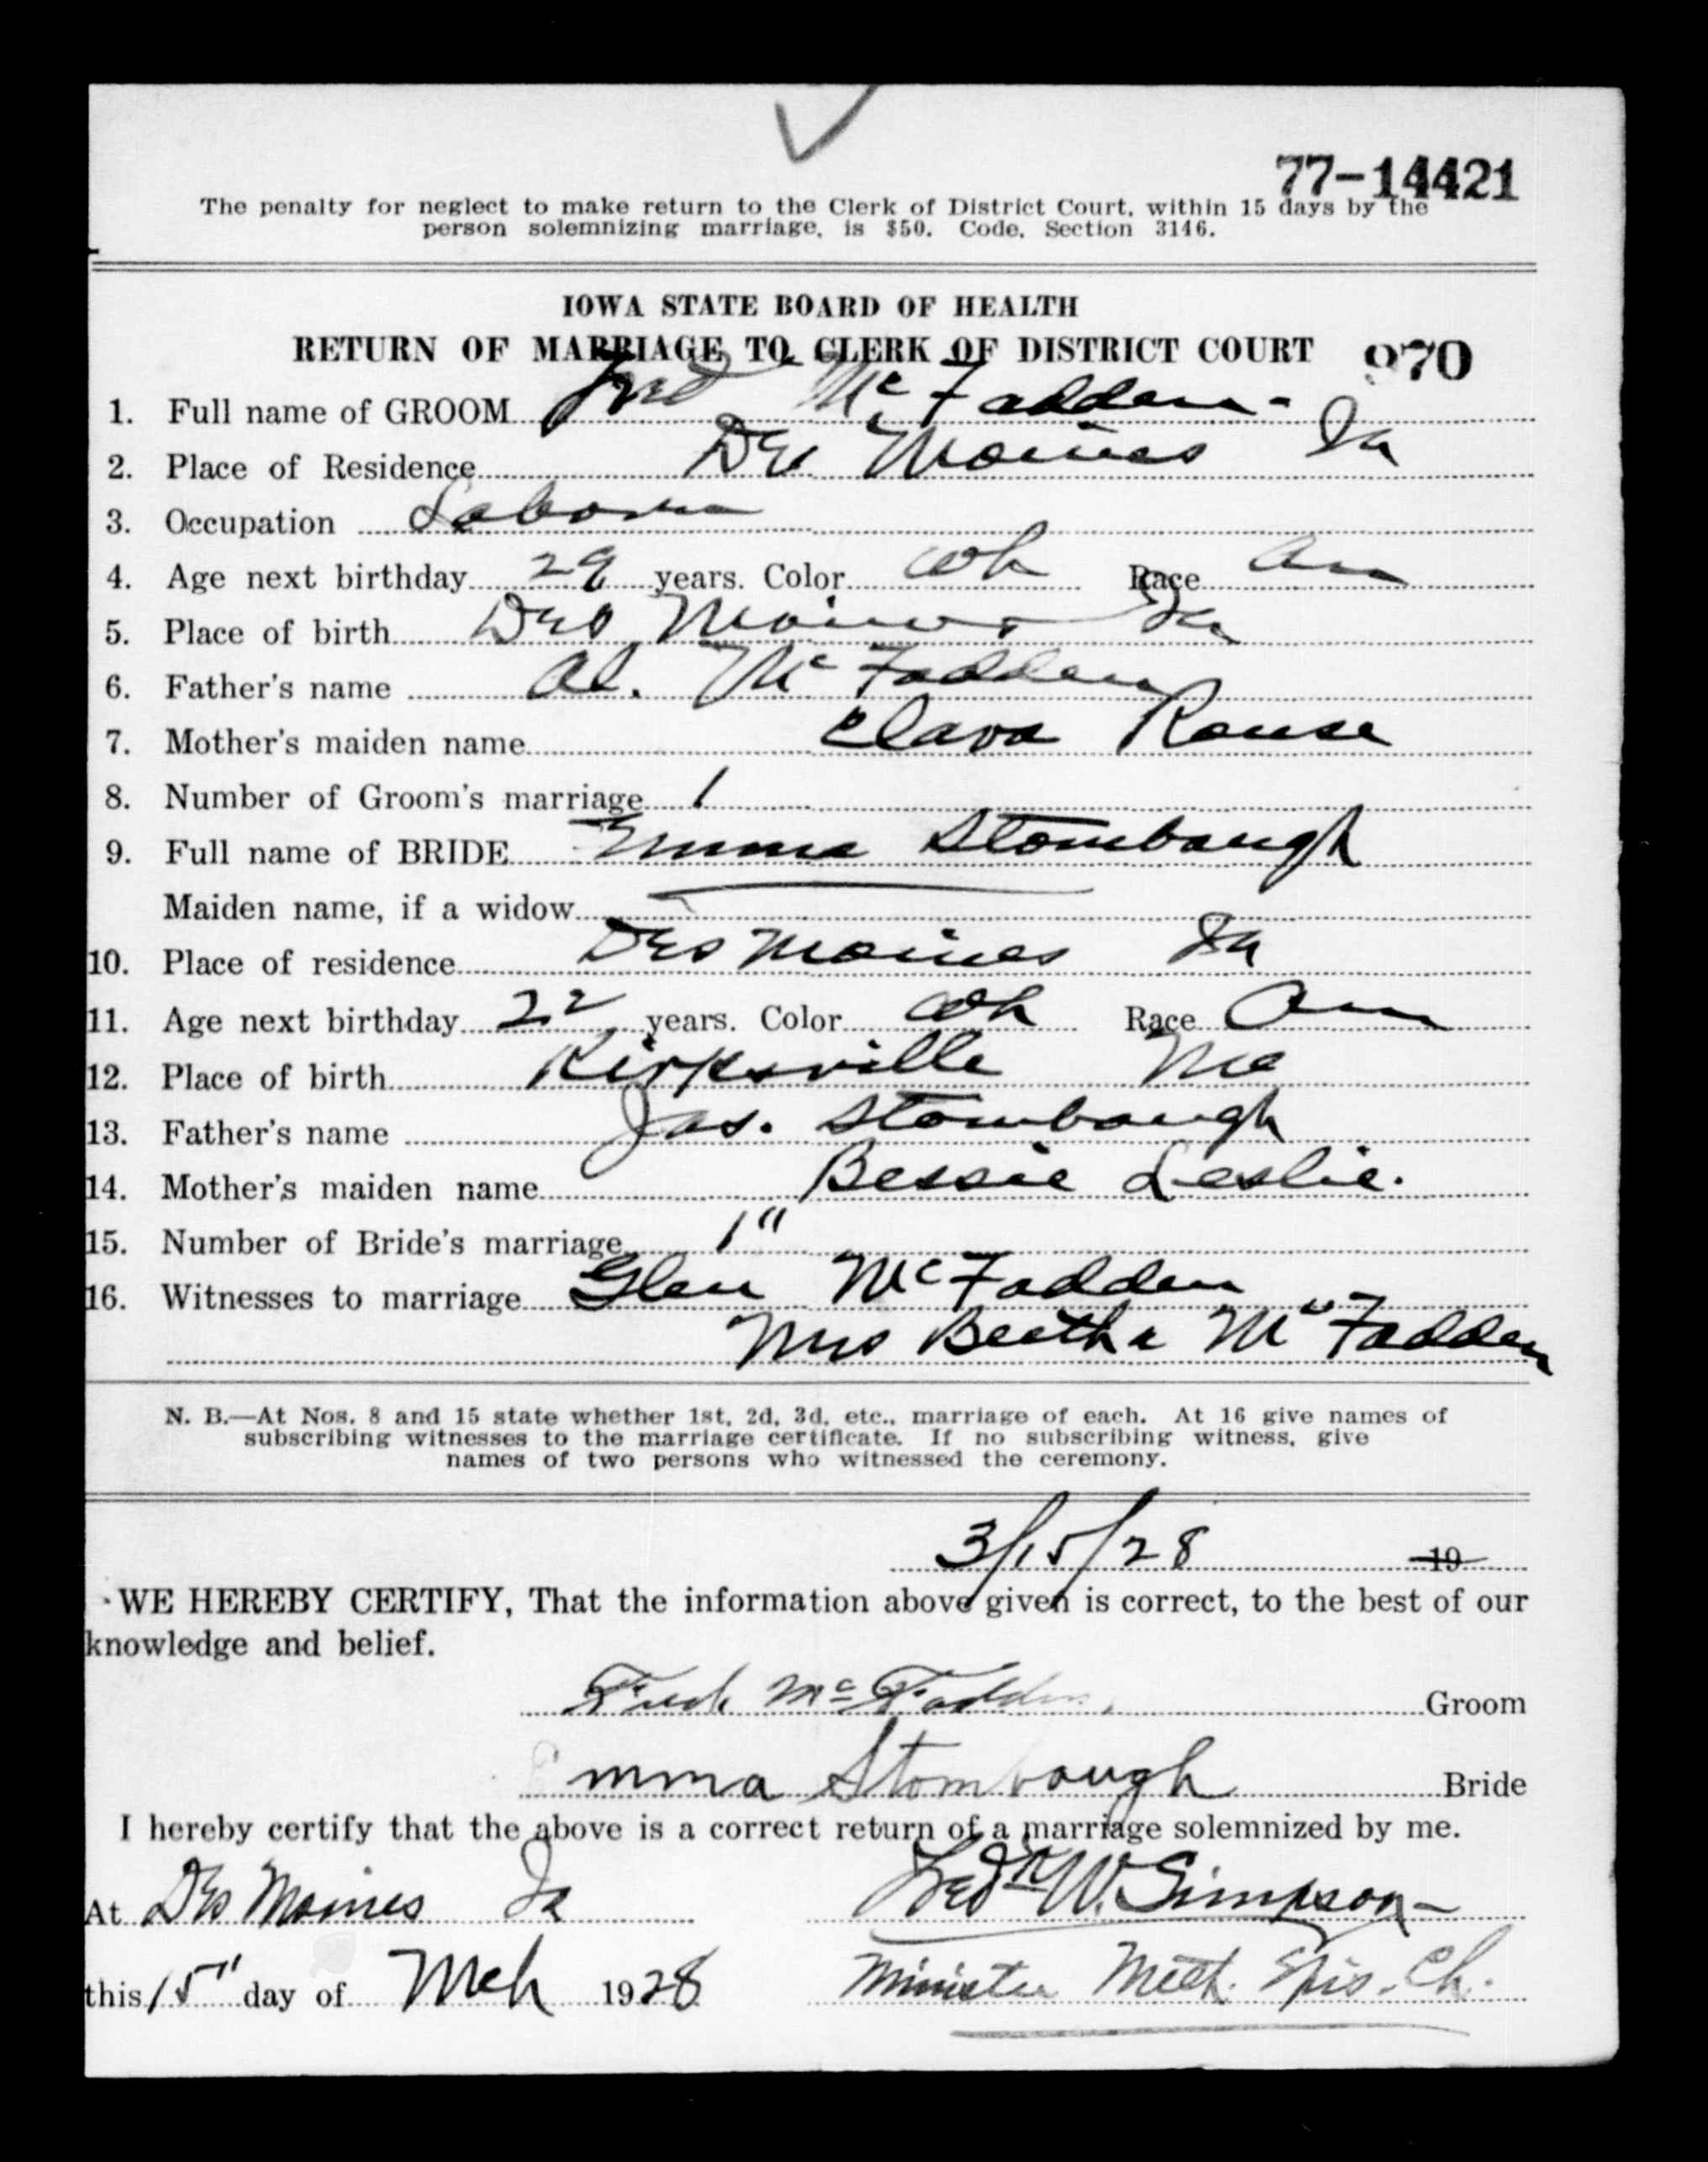 77-14421
The penalty for neglect to make return to the Clerk of District Court, within 15 days by the
person solemnizing marriage, is $50. Code, Section 3146.
IOWA STATE BOARD OF HEALTH
RETURN OF MARRIAGE TO CLERK OF DISTRICT COURT 970
1. Full name of GROOM Fred McFadden
2. Place of Residence Des Moines Ia
3. Occupation Laborer
4. Age next birthday 29 years. Color Wh Race Am
5. Place of birth Des Moines Ia
6. Father's name Al. McFadden
7. Mother's maiden name Clara Rouse
8. Number of Groom's marriage 1
9. Full name of BRIDE Emma Stombaugh
Maiden name, if a widow
10. Place of residence Des Moines Ia
11. Age next birthday 22 years. Color Wh Race Am
12. Place of birth Kirksville Mo
13. Father's name Jas. Stombaugh
14. Mother's maiden name Bessie Leslie.
15. Number of Bride's marriage 1"
16. Witnesses to marriage Glen McFadden
Mrs Beatha McFadden
N. B.—At Nos. 8 and 15 state whether 1st, 2d, 3d, etc., marriage of each. At 16 give names of
subscribing witnesses to the marriage certificate. If no subscribing witness, give
names of two persons who witnessed the ceremony.
3/15/28 19
WE HEREBY CERTIFY, That the information above given is correct, to the best of our
knowledge and belief.
McFadden Groom
Emma Stombaugh Bride
I hereby certify that the above is a correct return of a marriage solemnized by me.
At Des Moines Ia Fredk W. Simpson
this 15" day of Mch 1928 Minister Meth. Epis. Ch.